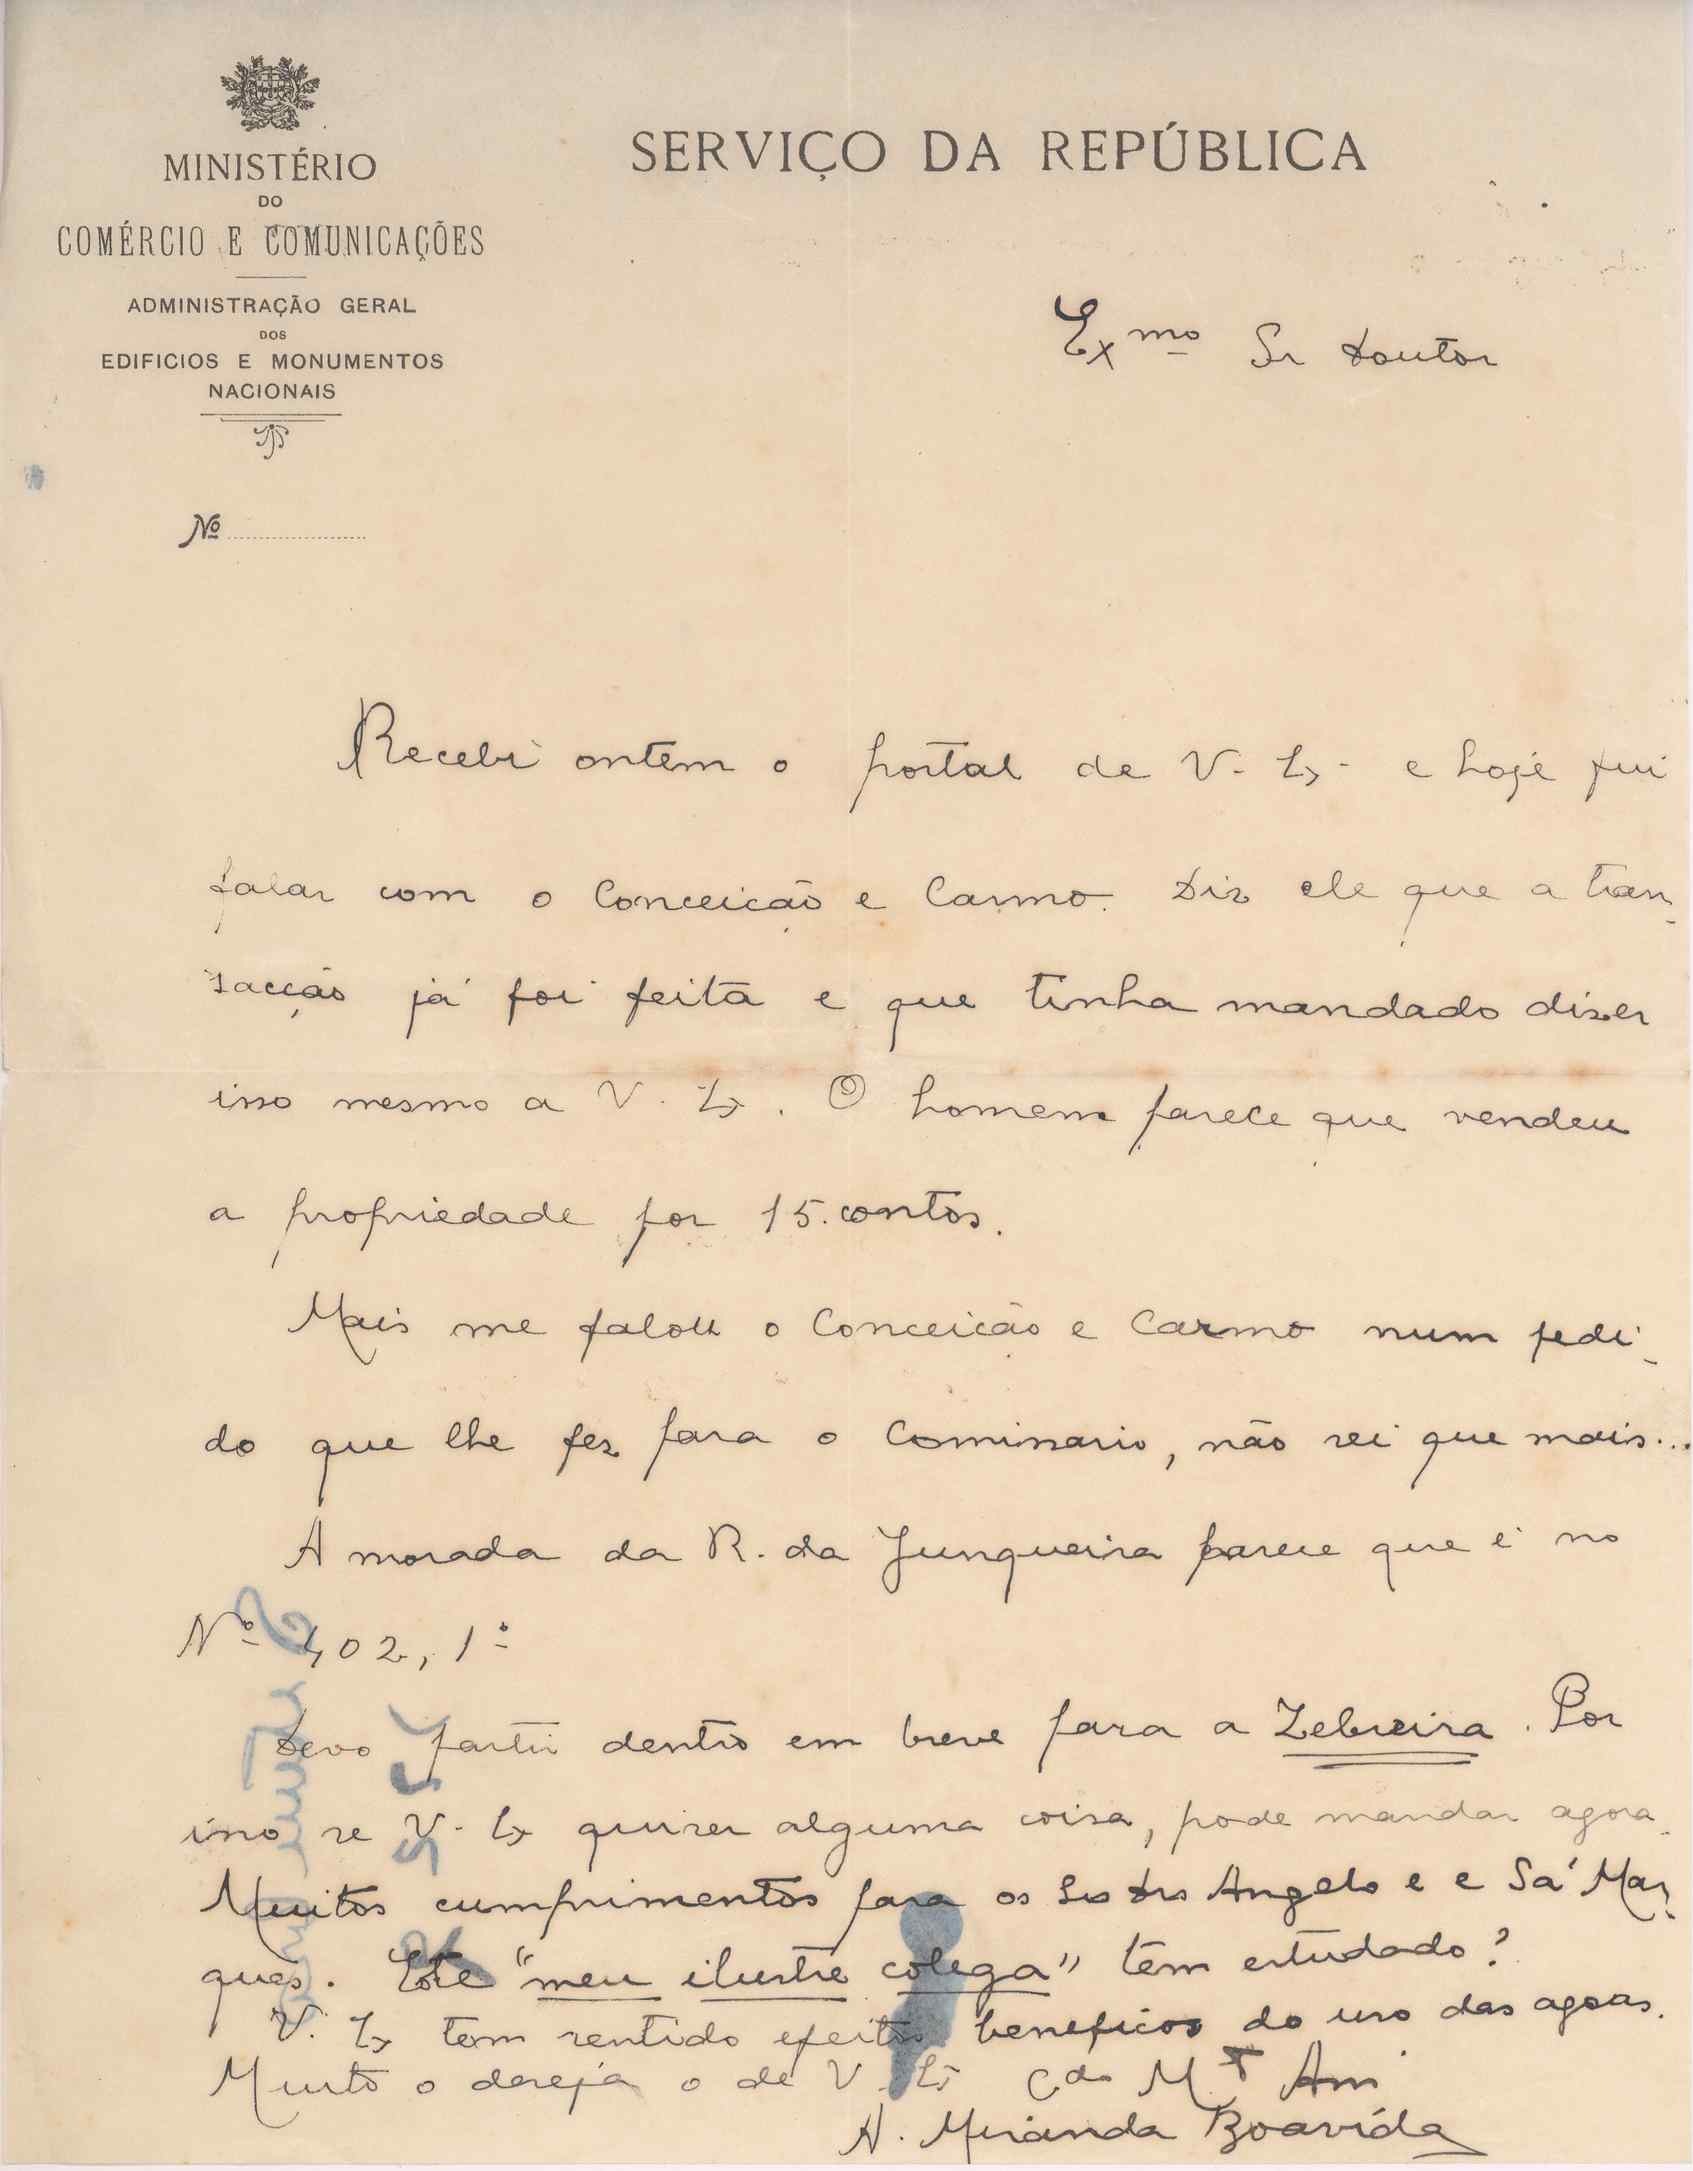 MINISTÉRIO
DO
COMÉRCIO E COMUNICAÇÕES
ADMINISTRAÇÃO GERAL
DOS
EDIFICIOS E MONUMENTOS
NACIONAIS
Nº
SERVIÇO DA REPÚBLICA
Exmo Sr Doutor
Recebi ontem o postal de V. Ex. e hoje fui
falar com o Conceição e Carmo. Diz ele que a tran-
sacção já foi feita e que tinha mandado dizer
isso mesmo a V. Ex. O homem parece que vendeu
a propriedade por 15 contos.
Mais me falou o Conceição e Carmo num pedi-
do que lhe fez para o Comissario, não sei que mais...
A morada da R. da Junqueira parece que é no
Nº 402, 1º
Devo partir dentro em breve para a Zebreira. Por
isso se V. Ex quiser alguma coisa, pode mandar agora.
Muitos cumprimentos para os Srs Drs Angelo e e Sá Mar-
ques. Este "meu ilustre colega" tem estudado?
V. Ex tem sentido efeitos beneficos do uso das agoas.
Muito o deseja o de V. Ex Cdo Mt Am
A. Miranda Boavida